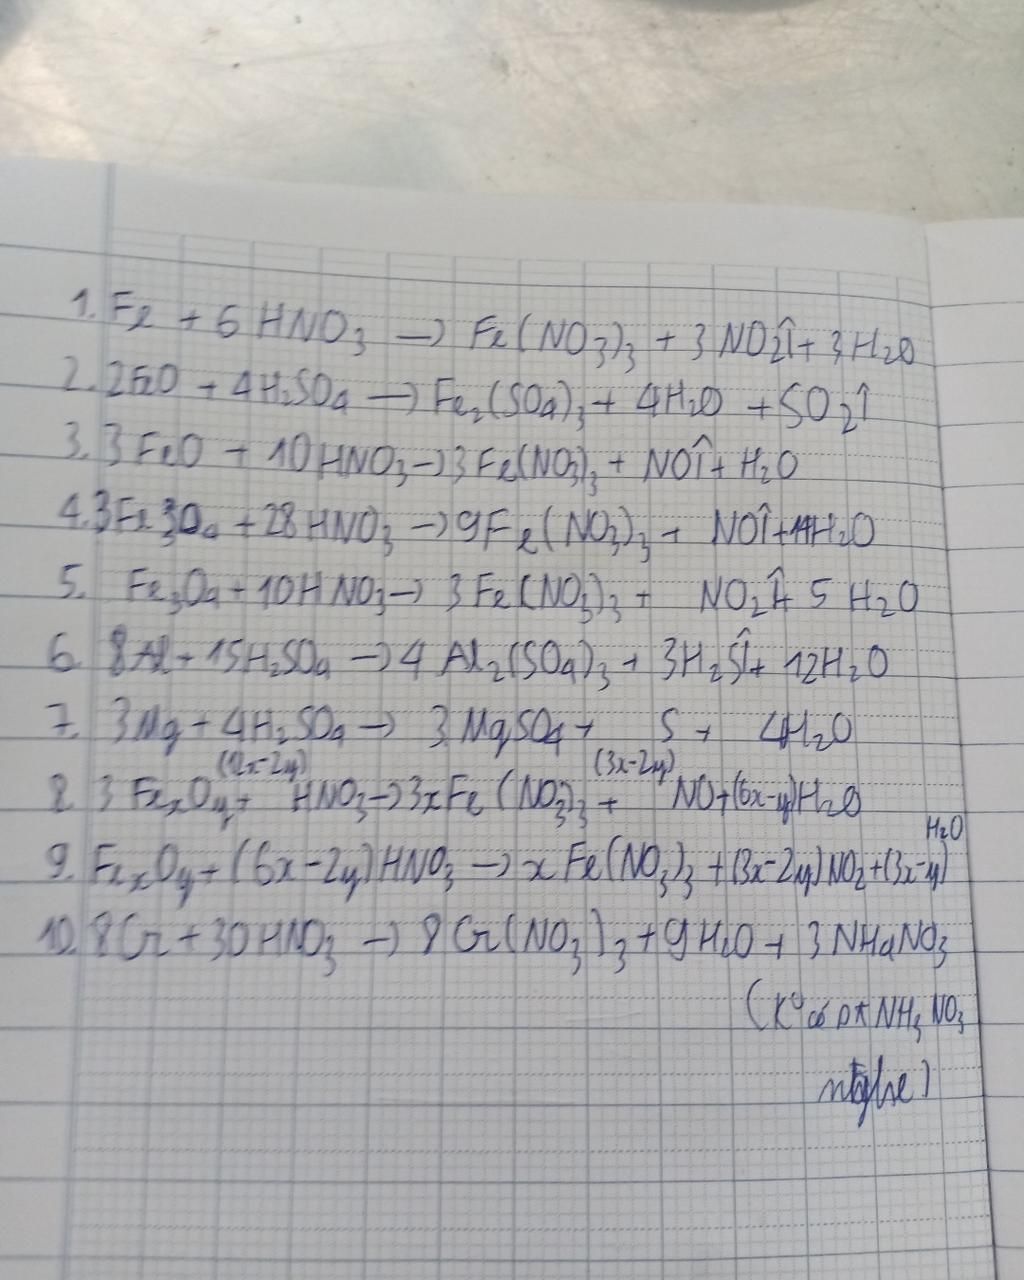 1. Fe + 6 HNO3 → Fe(NO3)3 + 3 NO2↑ + 3 H2O
2. 2FeO + 4H2SO4 → Fe2(SO4)3 + 4H2O + SO2↑
3. 3 FeO + 10 HNO3 → 3 Fe(NO3)3 + NO↑ + H2O
4. 3Fe3O4 + 28 HNO3 → 9Fe(NO3)3 + NO↑ + 14H2O
5. Fe3O4 + 10HNO3 → 3 Fe(NO3)3 + NO2↑ + 5 H2O
6. 8Al + 15H2SO4 → 4 Al2(SO4)3 + 3H2S↑ + 12H2O
7. 3Mg + 4H2SO4 → 3 MgSO4 + S + 4H2O
8. 3 FexOy + (12x-2y) HNO3 → 3xFe(NO3)3 + (3x-2y) NO + (6x-y)H2O
9. FexOy + (6x-2y)HNO3 → xFe(NO3)3 + (3x-2y)NO2 + (3x-y) H2O
10. 8Cr + 30HNO3 → 8Cr(NO3)3 + 9H2O + 3 NH4NO3
(K có NH3NO3